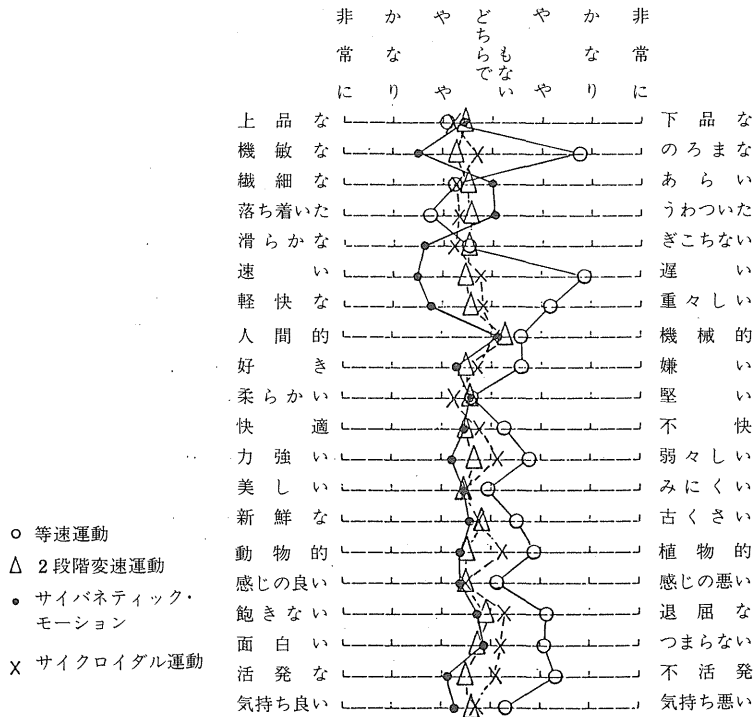 非常に かなり やや どちらでもない やや かなり 非常に
上品な 下品な
機敏な のろまな
繊細な あらい
落ち着いた うわついた
滑らかな ぎこちない
速い 遅い
軽快な 重々しい
人間的 機械的
好き 嫌い
柔らかい 堅い
快適 不快
力強い 弱々しい
美しい みにくい
新鮮な 古くさい
動物的 植物的
感じの良い 感じの悪い
飽きない 退屈な
面白い つまらない
活発な 不活発
気持ち良い 気持ち悪い
○ 等速運動
△ 2段階変速運動
● サイバネティック・
モーション
× サイクロイダル運動